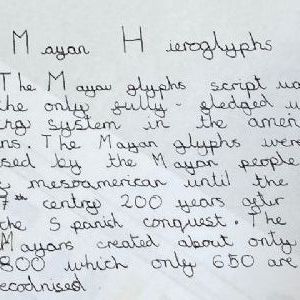 Mayan Hieroglyphs
The Mayan glyphs script wa
the only fully - gledged w
ng system in the amer
ns. The Mayan glyphs were
sed by the Mayan people
mesoamerican until the
7th centry 200 years aftr
the Spanish conquest. The
Mayans created about only
800 which only 650 are
ecodnised